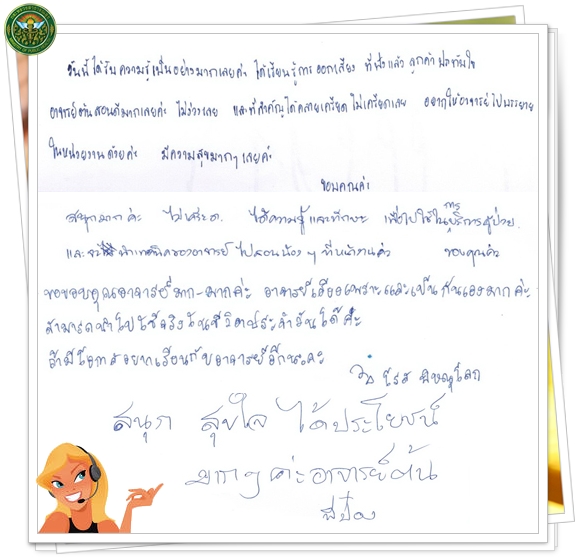 วันนี้ได้รับความรู้เพิ่มอย่างมากเลยค่ะ ได้เรียนรู้การออกเสียง ที่ฟังแล้ว ลูกค้าประทับใจ
อาจารย์ต้นสอนดีมากเลยค่ะ ไม่ง่วงเลย และที่สำคัญได้คลายเครียด ไม่เครียดเลย อยากให้อาจารย์ไปบรรยาย
ในหน่วยงานด้วยค่ะ มีความสุขมากๆ เลยค่ะ
ขอบคุณค่ะ
สนุกมาก ค่ะ ไม่เครียด. ได้ความรู้ และทักษะ เพื่อไปใช้ในการบริการผู้ป่วย.
และจะนำเทคนิคของอาจารย์ ไปสอนน้อง ๆ ที่หน้างานค่ะ ขอบคุณค่ะ
ขอขอบคุณอาจารย์มาก-มากค่ะ อาจารย์เสียงเพราะและเป็นกันเองมากค่ะ
สามารถนำไปใช้จริงในชีวิตประจำวันได้ค่ะ
ถ้ามีโอกาสอยากเรียนกับอาจารย์อีกนะคะ
พิษณุโลก
สนุก สุขใจ ได้ประโยชน์
มากๆ ค่ะอาจารย์ต้น